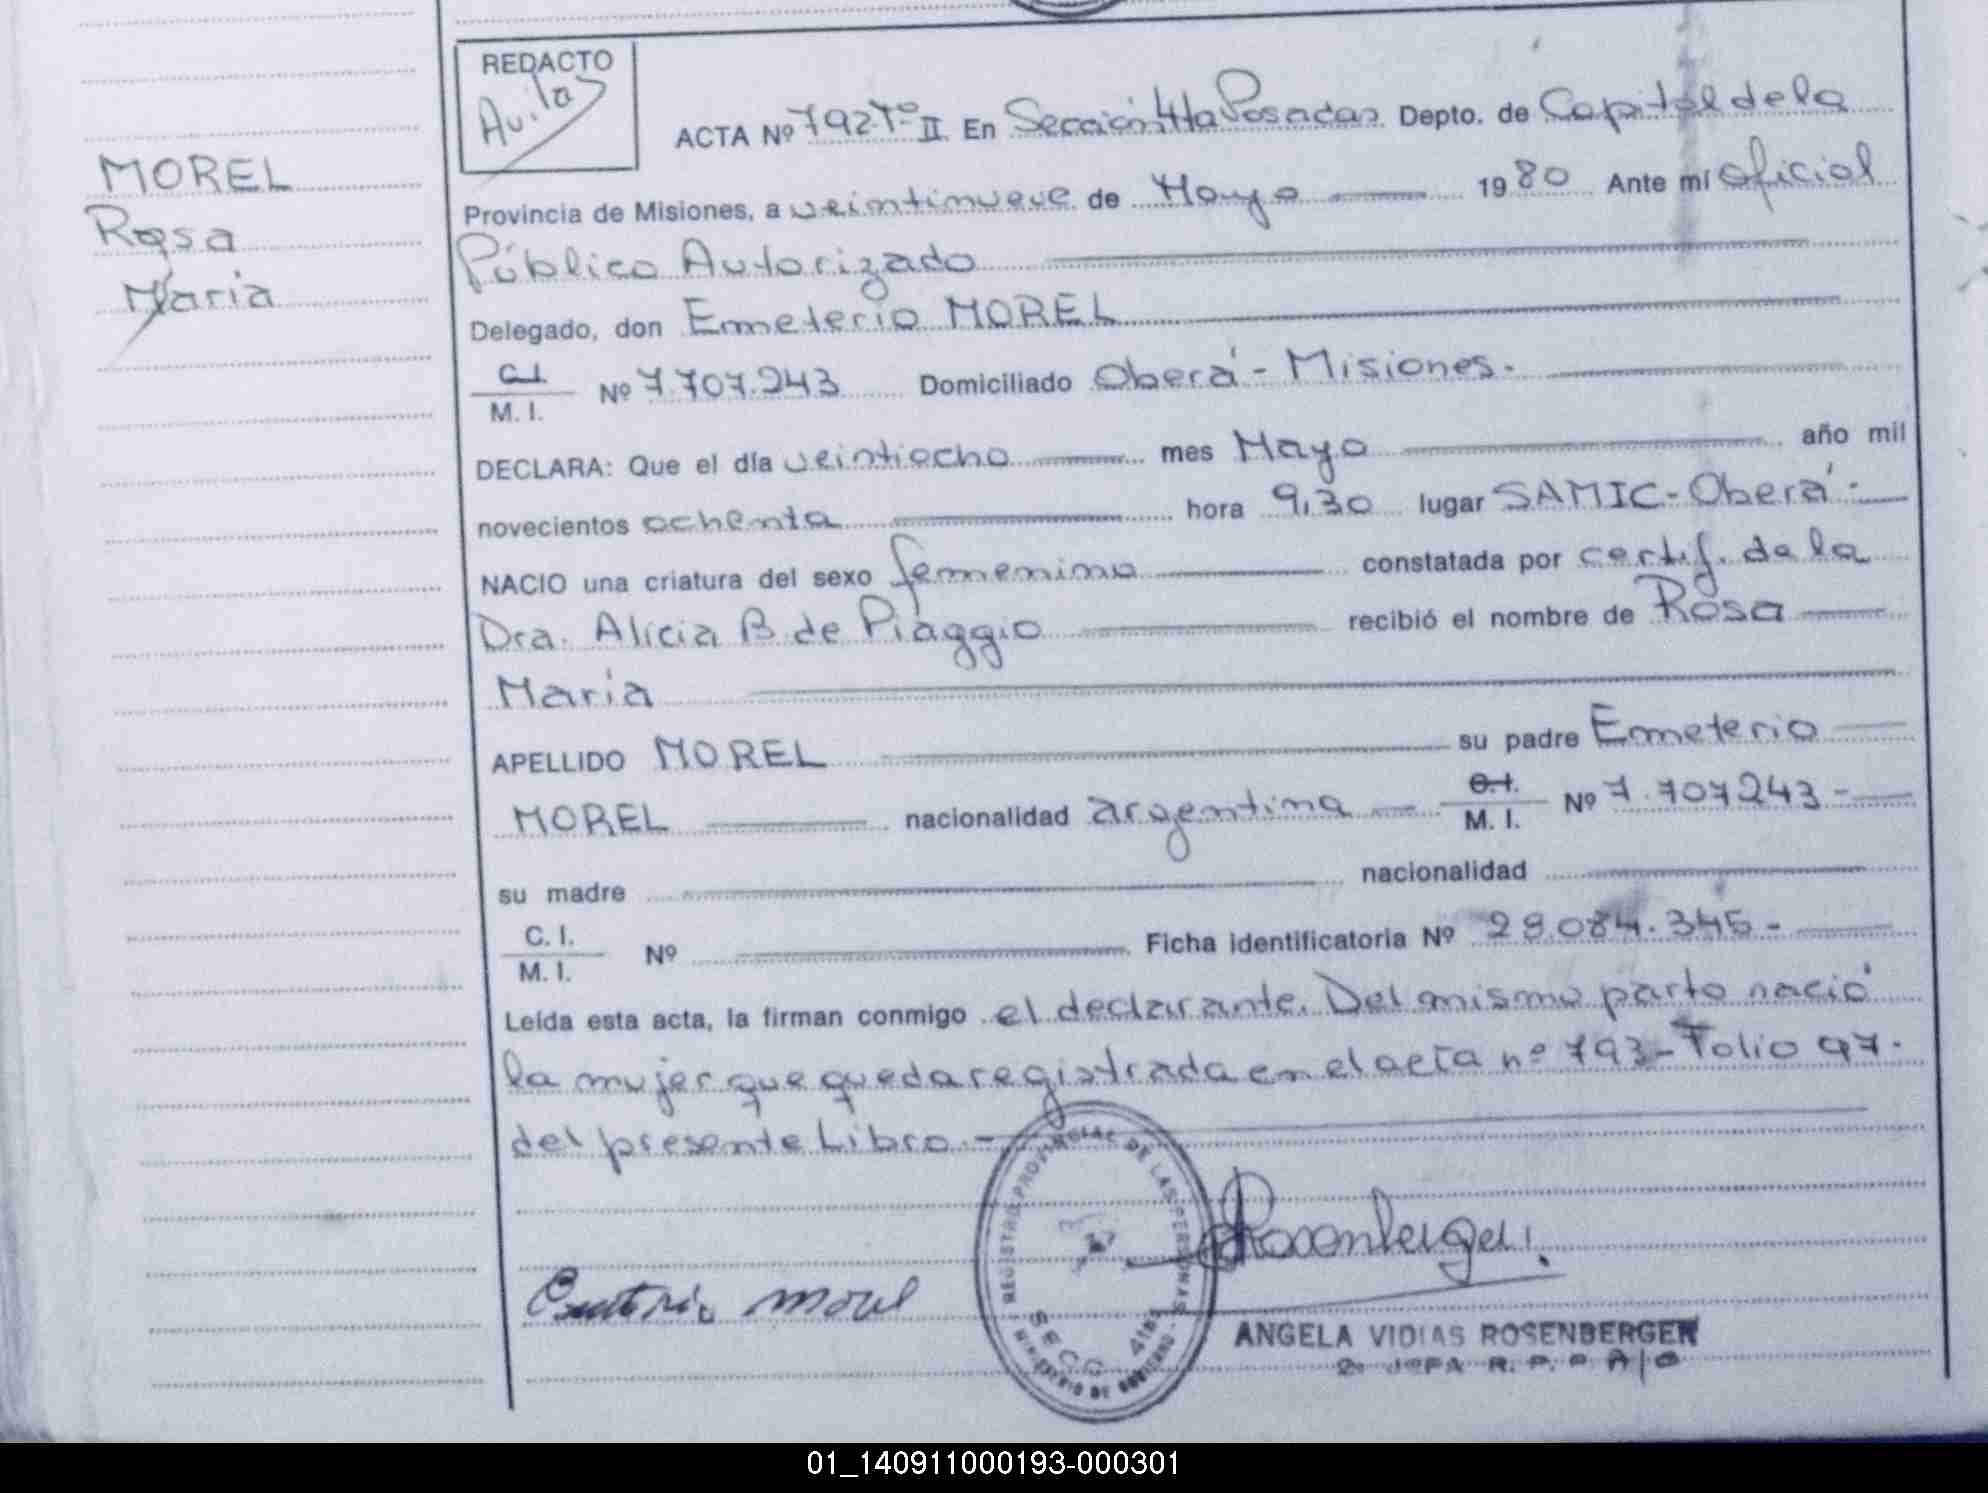 REDACTO
Avila
MOREL
Rosa
Maria
ACTA Nº 792 Tº II. En Sección 4ta Posadas Depto. de Capital de la
Provincia de Misiones, a veintinueve de Mayo 1980 Ante mí Oficial
Público Autorizado
Delegado, don Emeterio MOREL
C.I.
M. I. Nº 7.707.243 Domiciliado Oberá - Misiones.
DECLARA: Que el día veintiocho mes Mayo año mil
novecientos ochenta hora 9,30 lugar SAMIC - Oberá -
NACIO una criatura del sexo femenino constatada por certif. de la
Dra. Alicia B. de Piaggio recibió el nombre de Rosa
María
APELLIDO MOREL su padre Emeterio
MOREL nacionalidad argentina C.I.
M. I. Nº 7.707243 -
su madre nacionalidad
C. I.
M. I. Nº Ficha identificatoria Nº 28.084.345 -
Leída esta acta, la firman conmigo el declarante. Del mismo parto nació
la mujer que queda registrada en el acta nº 793 - Folio 97.
del presente Libro. -
REGISTRO PROVINCIAL DE LAS PERSONAS
SECC. 4ta
MINISTERIO DE GOBIERNO
Rosenberger
Emeterio Morel
ANGELA VIDIAS ROSENBERGER
01_140911000193-000301